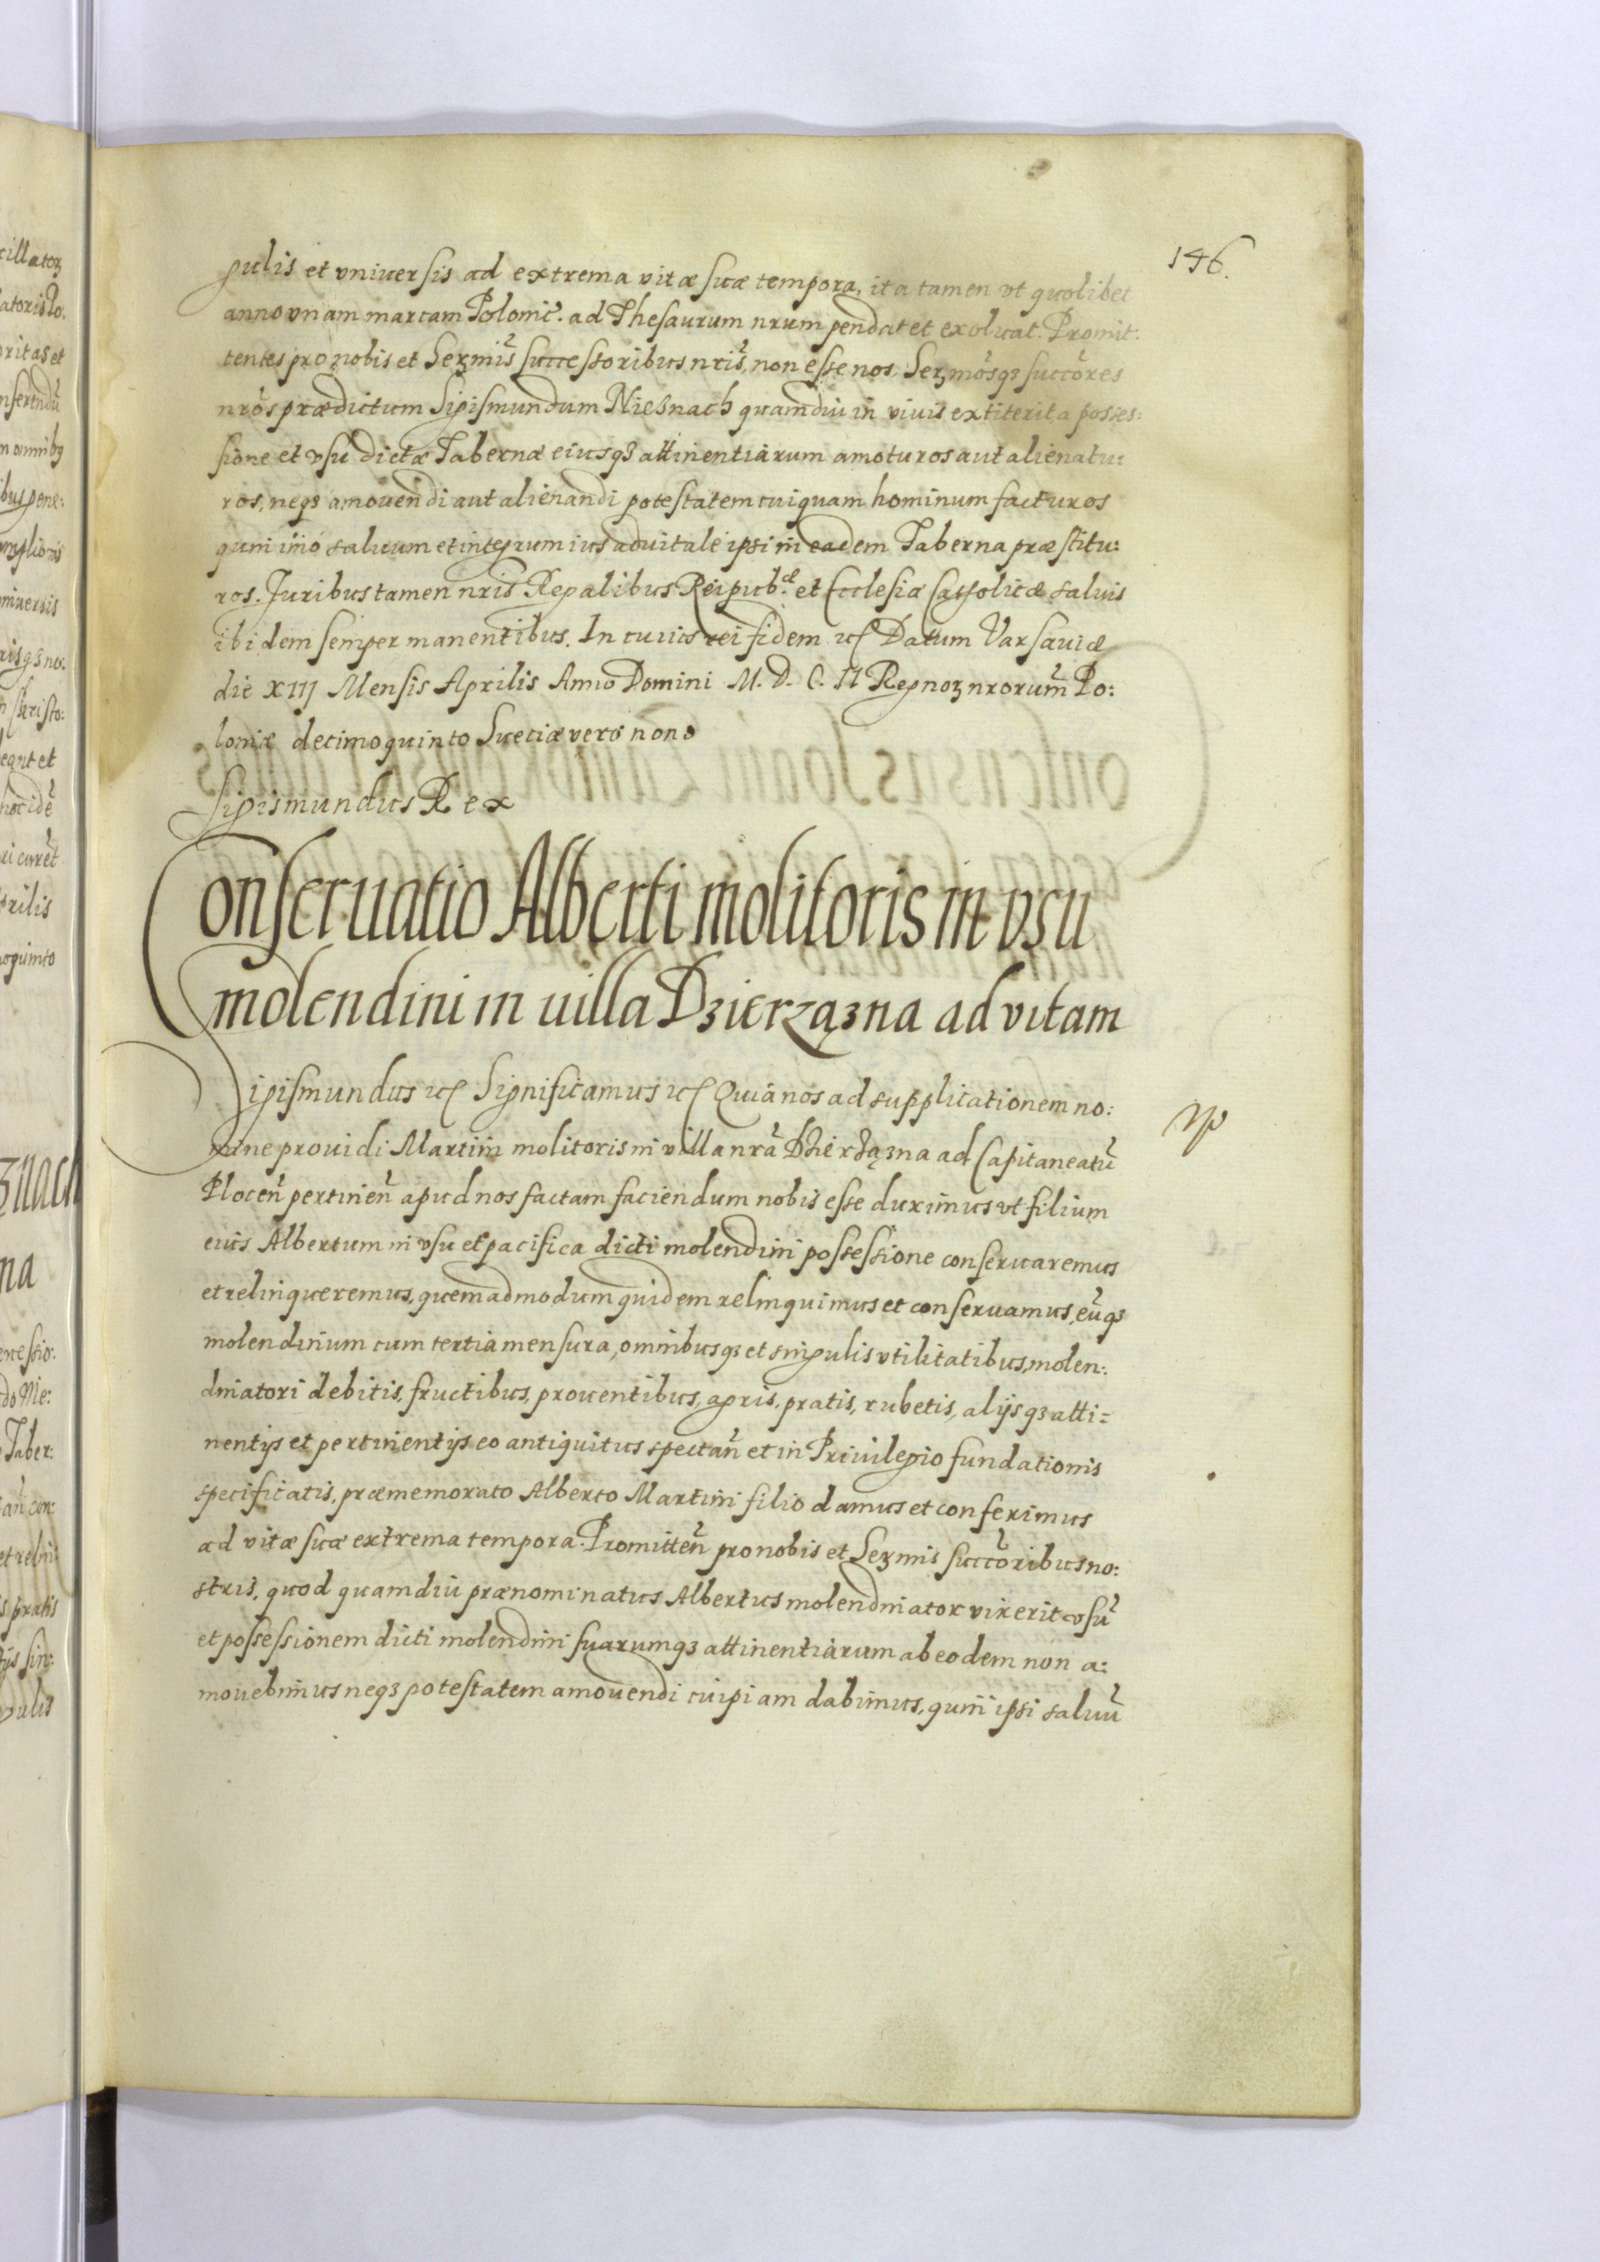 146.
gulis et vniuersis ad extrema vitæ suæ tempora, ita tamen vt quolibet
anno vnam marcam Polonic. ad Thesaurum nrum pendat et exoluat. Promit:
tentes pro nobis et Serᷤmis successoribus nris, non esse nos, Serᷤmosqꝫ succores
nros prædictum Sigismundum Nieznach quamdiu in viuis extiterit a posses:
sione et vsu dictæ Tabernæ eiusqꝫ attinentiarum amoturos aut alienatu:
ros, neqꝫ amouendi aut alienandi potestatem cuiquam hominum facturos
quin imo saluum et integrum ius aduitale ipsi in eadem Taberna præstitu:
ros. Juribus tamen nris Regalibus Reipub.æ et Ecclesiæ Catholicæ saluis
ibidem semper manentibus. In cuius rei fidem etc Datum Varsauiæ
die XIIJ Mensis Aprilis Anno Domini M. D. C. II Regnoꝝ nrorum Po:
loniæ decimoquinto Sueciæ vero nono
Sigismundus Rex
Conseruatio Alberti molitoris in vsu
molendini in uilla Dzierzązna ad vitam
Sigismundus etc Significamus etc Quia nos ad supplicationem no:
mine prouidi Martini molitoris in villa nra Dzierzązna ad Capitaneatu
Plocen pertinen apud nos factam faciendum nobis esse duximus vt filium
eius Albertum in vsu et pacifica dicti molendini possessione conseruaremus
et relinqueremus, quemadmodum quidem relinquimus et conseruamus, euqꝫ
molendinum cum tertia mensura, omnibusqꝫ et singulis vtilitatibus, molen:
dinatori debitis, fructibus, prouentibus, agris, pratis, rubetis, alijsqꝫ atti=
nentijs et pertinentijs eo antiquitus spectan et in Priuilegio fundationis
specificatis, præmemorato Alberto Martini filio damus et conferimus
ad vitæ suæ extrema tempora. Promitten pro nobis et Serᷤmis succoribus no:
stris, quod quamdiu prænominatus Albertus molendinator vixerit vsu
et possessionem dicti molendini suarumqꝫ attinentiarum ab eodem non a:
mouebimus neqꝫ potestatem amouendi cuipiam dabimus, quin ipsi saluu